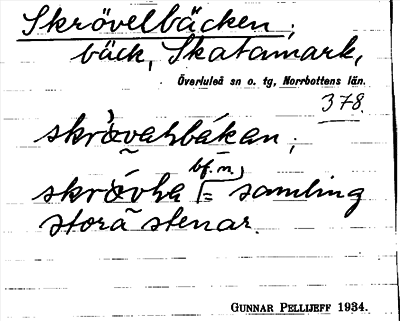 Skrövelbäcken;
bäck, Skatamark,
Överluleå sn o. tg, Norrbottens län.
378.
skròvahbákan;
bf. n.
skròvha = samling
stora stenar.
GUNNAR PELLIJEFF 1934.